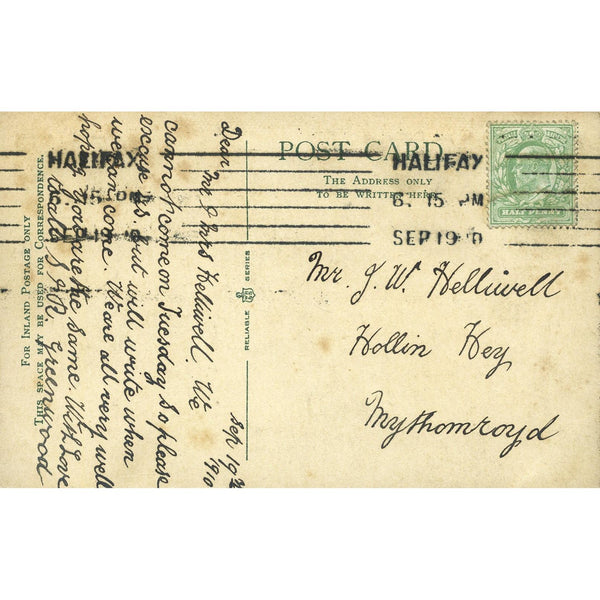 POST CARD
THE ADDRESS ONLY
TO BE WRITTEN HERE
HALIFAX
6. 15 PM
SEP 19 10
HALIFAX
6 15 PM
SEP 19 10
HALFPENNY
Mr. J. W. Helliwell
Hollin Hey
Mythomroyd
RELIABLE SERIES
Sep 19th 1910
Dear Mr & Mrs Helliwell We
cannot come on Tuesday so please
excuse us but will write when
we can come. We are all very well
hoping you are the same. With Love
J & R Greenwood
FOR INLAND POSTAGE ONLY
THIS SPACE MAY BE USED FOR CORRESPONDENCE.